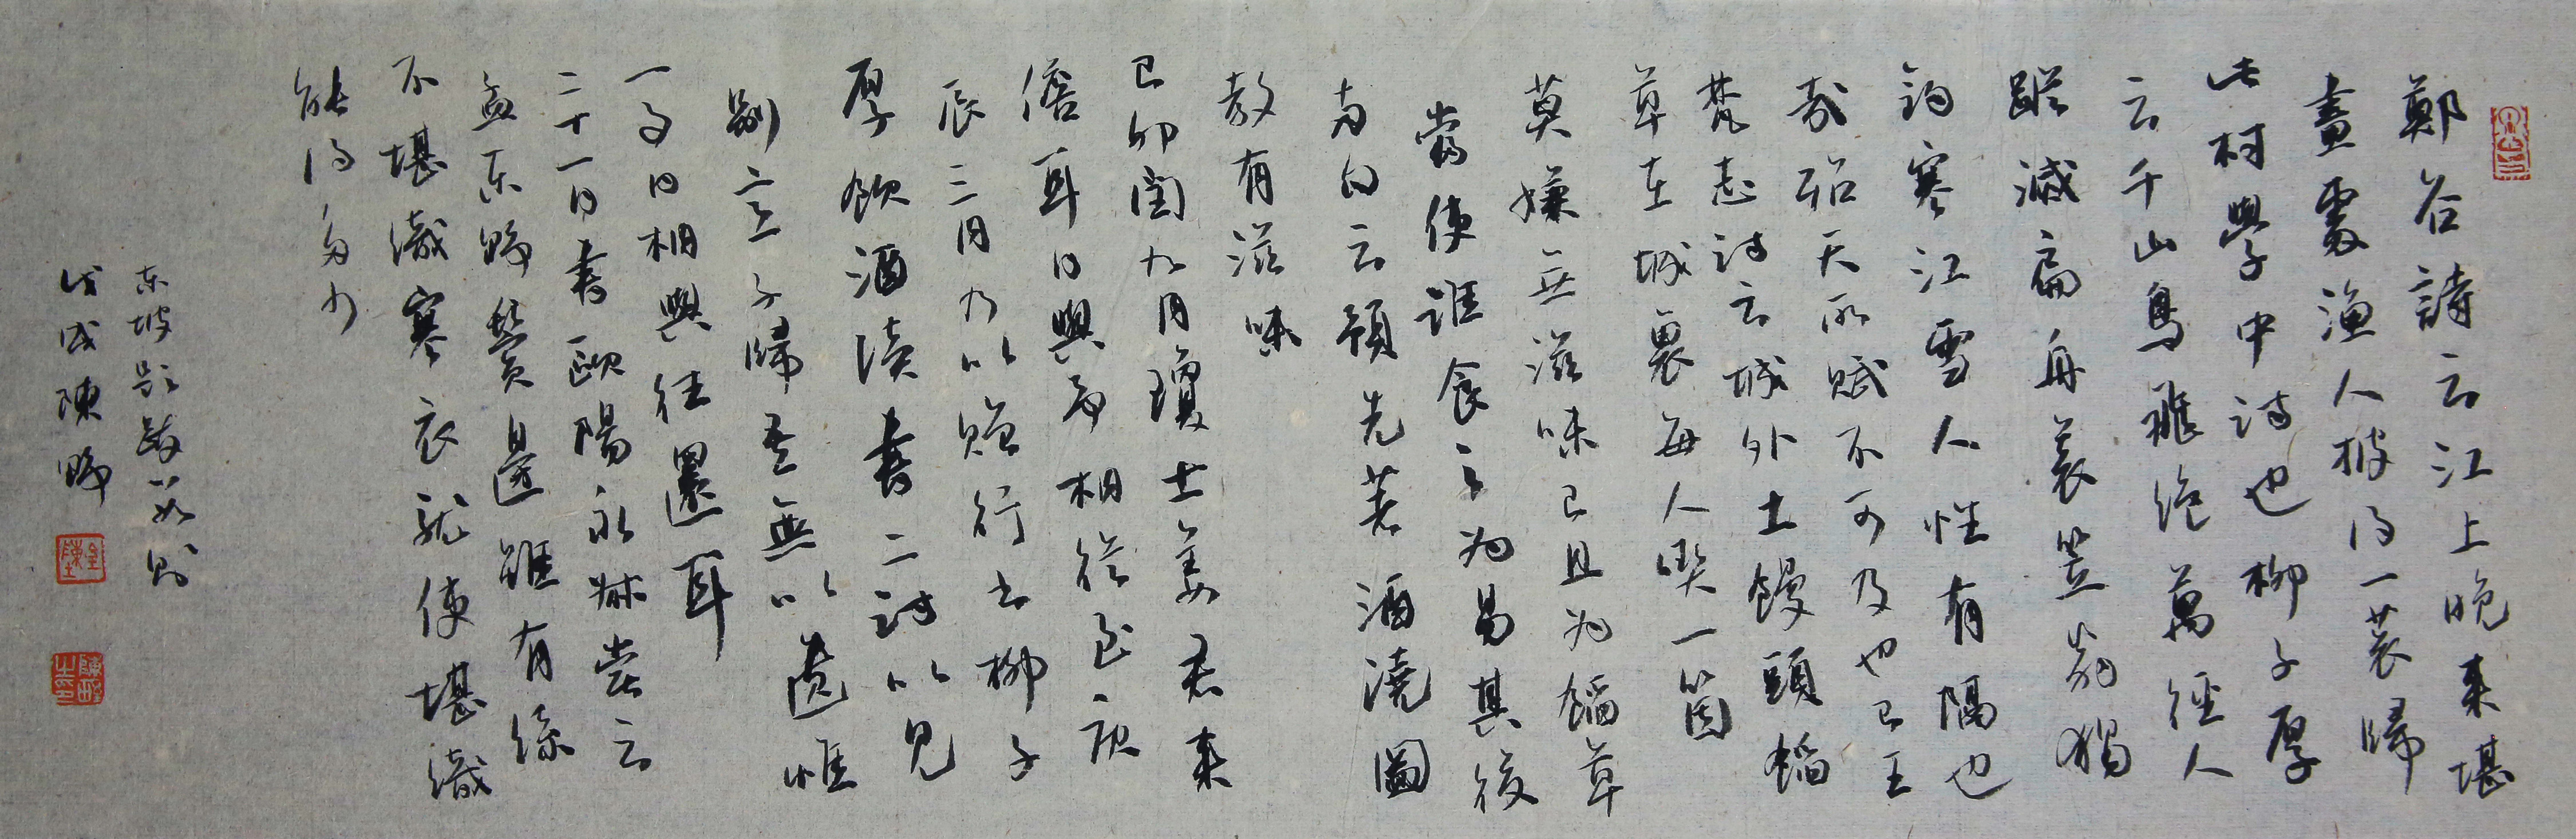 鄭谷詩云江上晚来堪
畫處漁人披得一蓑歸
此村學中詩也柳子厚
云千山鳥飛絕萬徑人
蹤滅扁舟蓑笠翁獨
釣寒江雪人性有隔也
哉殆天所賦不可及也已王
梵志詩云城外土饅頭餡
草在城裏每人喫一箇
莫嫌無滋味已且為餡草
當使誰食之為易其後
兩句云預先著酒澆圖
教有滋味
己卯閏九月瓊士姜君来
儋耳日與予相從至庚
辰三月乃以贈行書柳子
厚飲酒讀書二詩以見
別意子歸吾無以遣惟
一事日相與往還耳
二十一日書歐陽永叔嘗云
孟東野鬢邊雖有絲
不堪織寒衣就使堪織
能得多少
东坡題跋数则
戊戌陳野